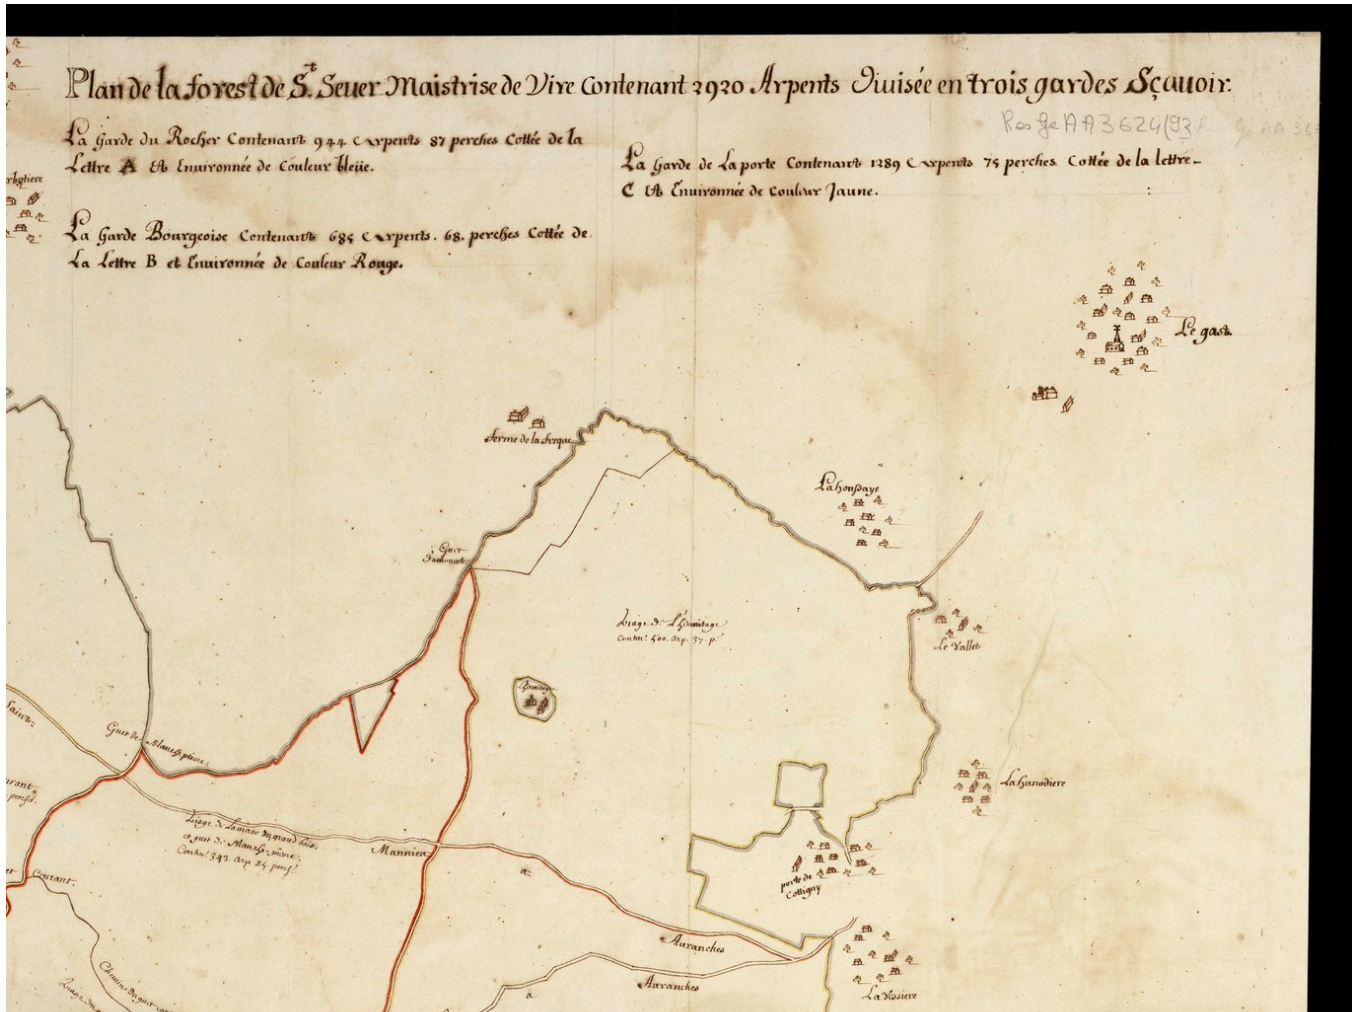 Plan de la forest de St. Sever Maistrise de Vire Contenant 2920 Arpents Divisée en trois gardes Sçavoir.
Res Ge AA 3624 (93
La Garde du Rocher Contenant 944 Arpents 87 perches Cottée de la
Lettre A Et Environnée de Couleur bleüe.
La Garde de La porte Contenant 1289 Arpents 75 perches Cottée de la lettre
C Et Environnée de couleur Jaune.
La Garde Bourgeoise Contenant 685 Arpents. 68. perches Cottée de
La Lettre B et Environnée de Couleur Rouge.
Le gast.
ferme de la
La houssaye
Guet
Triage de L'hermitage
Le Vallet
hermitage
Guet de Blanche pierre
La hanodiere
Triage de Lamare du grand bois
et guet de Blanche pierre
Contnt. 343. arp 84 perch.
Mannieu
a
porte de
Cottigny
Courant.
Avranches
Avranches
a
La Vessiere